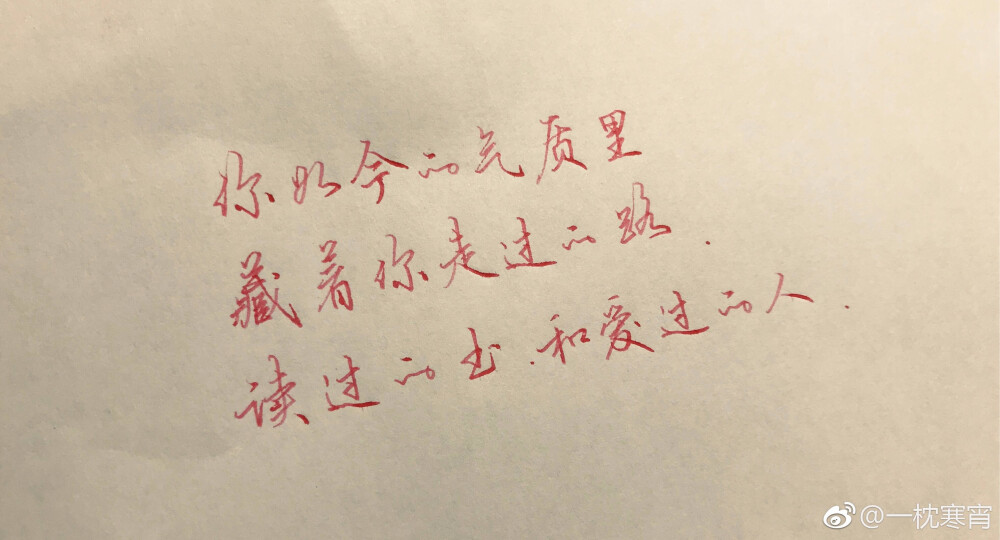 你如今的气质里
藏着你走过的路.
读过的书.和爱过的人.
@一枕寒宵